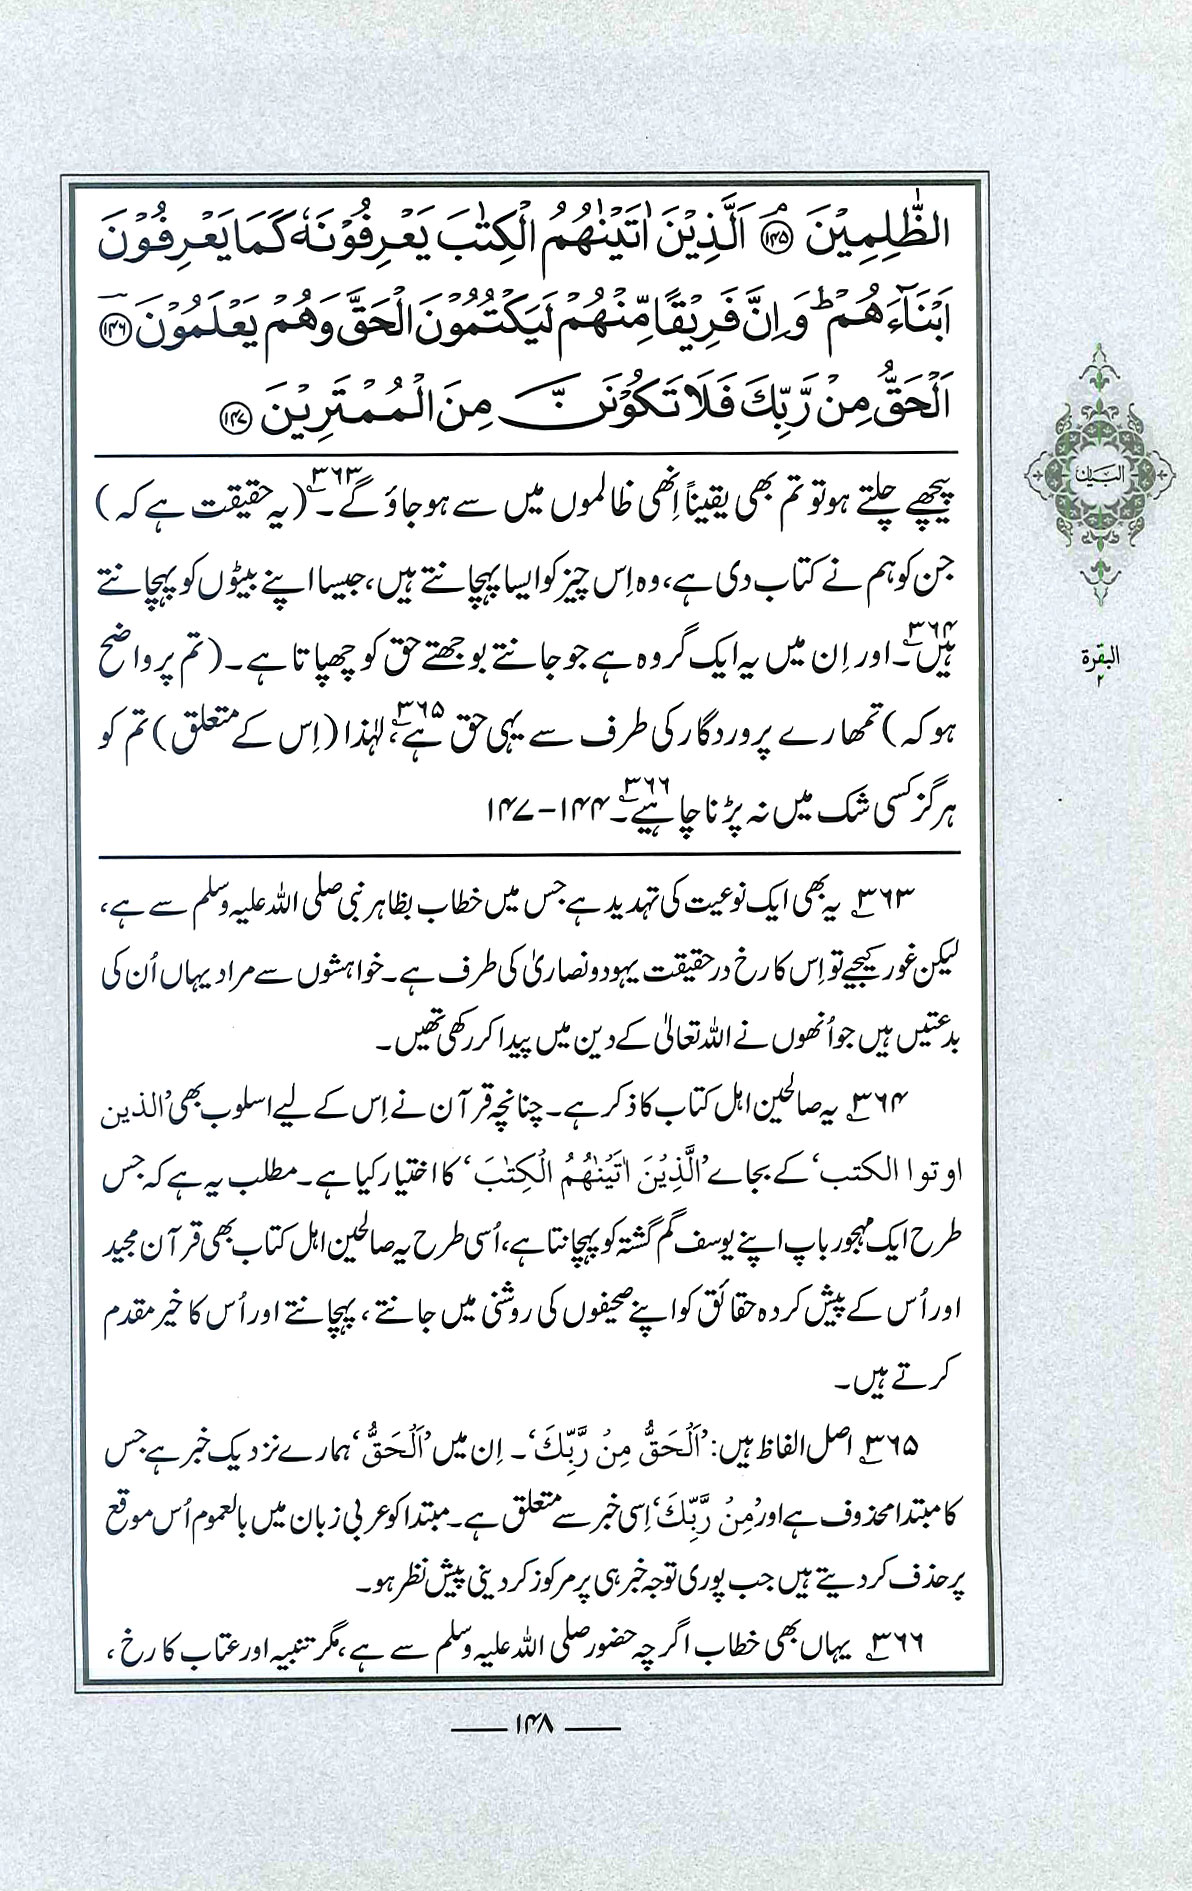 الظّٰلِمِيْنَ ﴿۱۴۵﴾ۘ اَلَّذِيْنَ اٰتَيْنٰهُمُ الْكِتٰبَ يَعْرِفُوْنَهٗ كَمَا يَعْرِفُوْنَ
اَبْنَآءَهُمْ ؕ وَاِنَّ فَرِيْقًا مِّنْهُمْ لَيَكْتُمُوْنَ الْحَقَّ وَهُمْ يَعْلَمُوْنَ ﴿۱۴۶﴾
اَلْحَقُّ مِنْ رَّبِّكَ فَلَا تَكُوْنَنَّ مِنَ الْمُمْتَرِيْنَ ﴿۱۴۷﴾
پیچھے چلتے ہو تو تم بھی یقیناً اِنھی ظالموں میں سے ہو جاؤ گے۔۳۶۳ (یہ حقیقت ہے کہ)
جن کو ہم نے کتاب دی ہے، وہ اِس چیز کو ایسا پہچانتے ہیں، جیسا اپنے بیٹوں کو پہچانتے
ہیں۔۳۶۴ اور اِن میں یہ ایک گروہ ہے جو جانتے بوجھتے حق کو چھپاتا ہے۔ (تم پر واضح
ہو کہ) تمھارے پروردگار کی طرف سے یہی حق ہے،۳۶۵ لہٰذا (اِس کے متعلق) تم کو
ہرگز کسی شک میں نہ پڑنا چاہیے۔۳۶۶ ۱۴۴-۱۴۷
۳۶۳ یہ بھی ایک نوعیت کی تہدید ہے جس میں خطاب بظاہر نبی صلی اللہ علیہ وسلم سے ہے،
لیکن غور کیجیے تو اِس کا رخ درحقیقت یہود و نصاریٰ کی طرف ہے۔ خواہشوں سے مراد یہاں اُن کی
بدعتیں ہیں جو اُنھوں نے اللہ تعالیٰ کے دین میں پیدا کر رکھی تھیں۔
۳۶۴ یہ صالحین اہل کتاب کا ذکر ہے۔ چنانچہ قرآن نے اِس کے لیے اسلوب بھی ’الذین
اوتوا الکتب‘ کے بجاے ’الَّذِيْنَ اٰتَيْنٰهُمُ الْكِتٰبَ‘ کا اختیار کیا ہے۔ مطلب یہ ہے کہ جس
طرح ایک مہجور باپ اپنے یوسف گم گشتہ کو پہچانتا ہے، اُسی طرح یہ صالحین اہل کتاب بھی قرآن مجید
اور اُس کے پیش کردہ حقائق کو اپنے صحیفوں کی روشنی میں جانتے، پہچانتے اور اُس کا خیر مقدم
کرتے ہیں۔
۳۶۵ اصل الفاظ ہیں: ’اَلْحَقُّ مِنْ رَّبِّكَ‘۔ اِن میں ’اَلْحَقُّ‘ ہمارے نزدیک خبر ہے جس
کا مبتدا محذوف ہے اور ’مِنْ رَّبِّكَ‘ اِسی خبر سے متعلق ہے۔ مبتدا کو عربی زبان میں بالعموم اُس موقع
پر حذف کر دیتے ہیں جب پوری توجہ خبر ہی پر مرکوز کر دینی پیش نظر ہو۔
۳۶۶ یہاں بھی خطاب اگرچہ حضور صلی اللہ علیہ وسلم سے ہے، مگر تنبیہ اور عتاب کا رخ،
البیان
البقرۃ
۲
۱۴۸